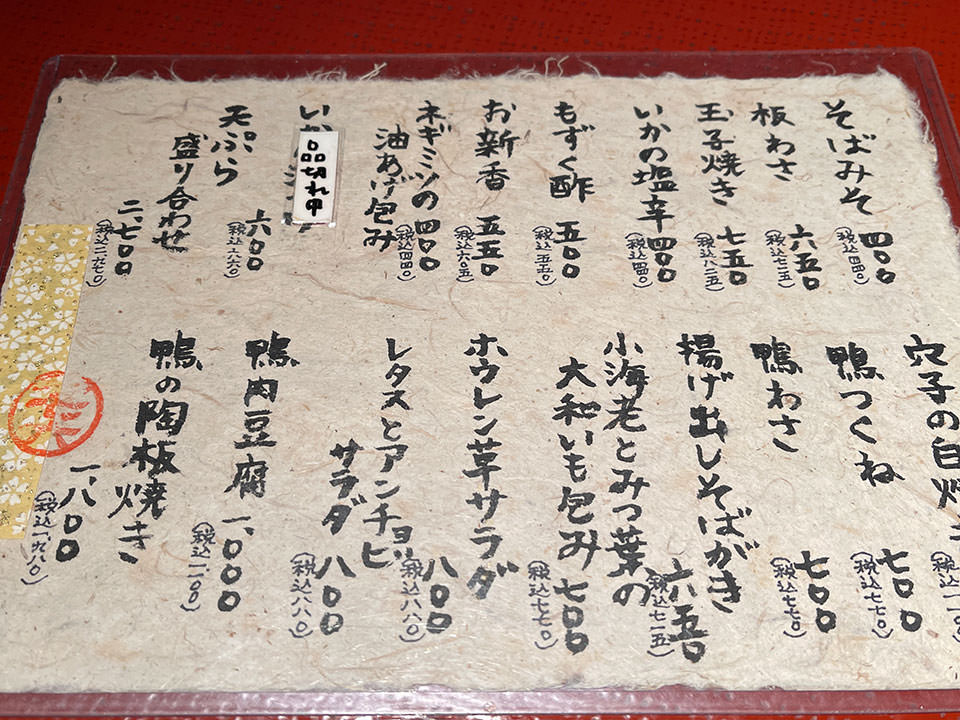 そばみそ 四〇〇
(税込四四〇)
板わさ 六五〇
(税込七一五)
玉子焼き 七五〇
(税込八二五)
いかの塩辛 四〇〇
(税込四四〇)
もずく酢 五〇〇
(税込五五〇)
お新香 五五〇
(税込六〇五)
ネギミツの
油あげ包み 四〇〇
(税込四四〇)
品切れ中
六〇〇
(税込六六〇)
天ぷら
盛り合わせ
二、七〇〇
(税込二、九七〇)
穴子の白焼き
鴨つくね 七〇〇
(税込七七〇)
鴨わさ 七〇〇
(税込七七〇)
揚げ出しそばがき 六五〇
(税込七一五)
小海老とみつ葉の
大和いも包み 七〇〇
(税込七七〇)
ホウレン草サラダ 八〇〇
(税込八八〇)
レタスとアンチョビ
サラダ 八〇〇
(税込八八〇)
鴨肉豆腐 一、〇〇〇
(税込一、一〇〇)
鴨の陶板焼き
一、八〇〇
(税込一、九八〇)